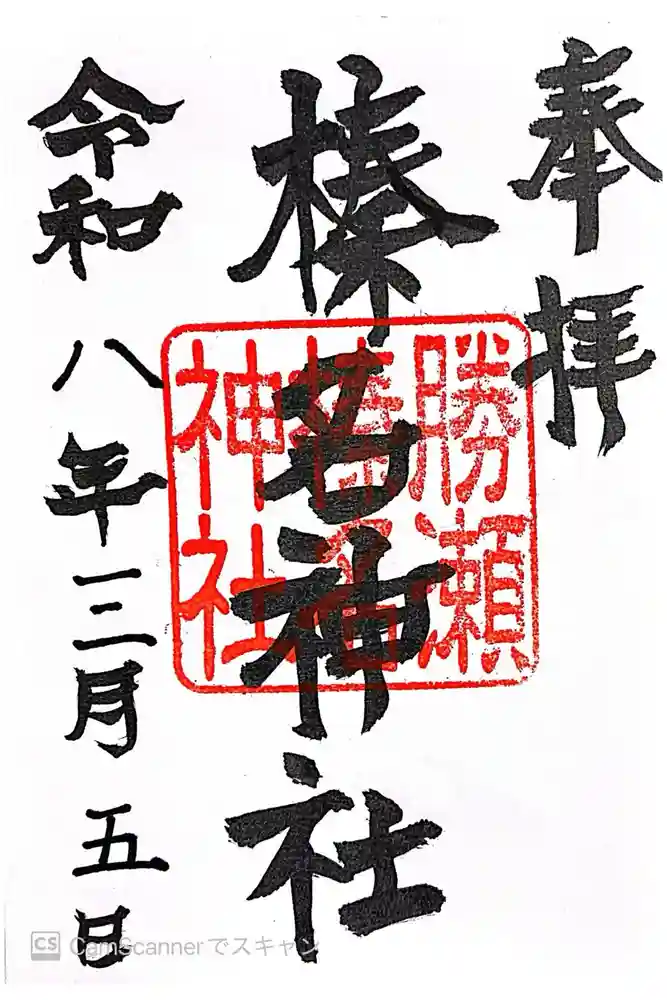 奉拝
榛名神社
勝瀬
榛名
神社
令和八年三月五日
CS CamScannerでスキャン